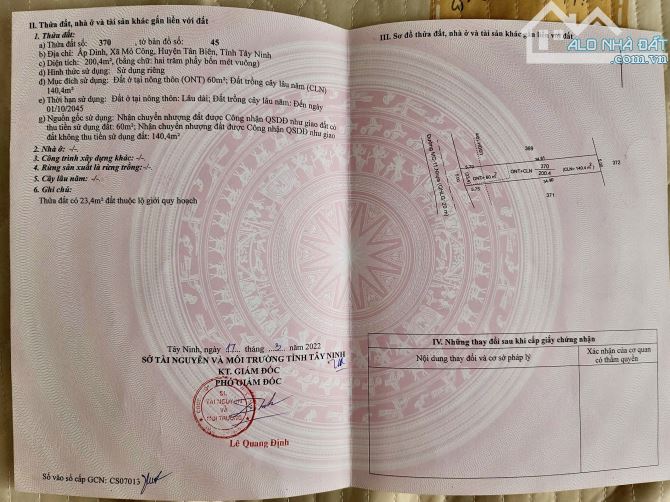 II. Thửa đất, nhà ở và tài sản khác gắn liền với đất
1. Thửa đất:
a) Thửa đất số: 370, tờ bản đồ số: 45
b) Địa chỉ: Ấp Dinh, Xã Mỏ Công, Huyện Tân Biên, Tỉnh Tây Ninh
c) Diện tích: 200,4m², (bằng chữ: hai trăm phẩy bốn mét vuông)
d) Hình thức sử dụng: Sử dụng riêng
đ) Mục đích sử dụng: Đất ở tại nông thôn (ONT) 60m²; Đất trồng cây lâu năm (CLN)
140,4m²
e) Thời hạn sử dụng: Đất ở tại nông thôn: Lâu dài; Đất trồng cây lâu năm: Đến ngày
01/10/2045
g) Nguồn gốc sử dụng: Nhận chuyển nhượng đất được Công nhận QSDĐ như giao đất có
thu tiền sử dụng đất: 60m²; Nhận chuyển nhượng đất được Công nhận QSDĐ như giao
đất không thu tiền sử dụng đất: 140,4m²
2. Nhà ở: -/-
3. Công trình xây dựng khác: -/-
4. Rừng sản xuất là rừng trồng: -/-
5. Cây lâu năm: -/-
6. Ghi chú:
Thửa đất có 23,4m² đất thuộc lộ giới quy hoạch
Tây Ninh, ngày 17 tháng 3 năm 2022
SỞ TÀI NGUYÊN VÀ MÔI TRƯỜNG TỈNH TÂY NINH
KT. GIÁM ĐỐC
PHÓ GIÁM ĐỐC
SỞ
TÀI NGUYÊN
VÀ
MÔI TRƯỜNG
Lê Quang Định
Số vào sổ cấp GCN: CS07013
III. Sơ đồ thửa đất, nhà ở và tài sản khác gắn liền với đất
ALO NHÀ ĐẤT
369
370
200.4
ONT+CLN
372
371
IV. Những thay đổi sau khi cấp giấy chứng nhận
Nội dung thay đổi và cơ sở pháp lý
Xác nhận của cơ quan
có thẩm quyền